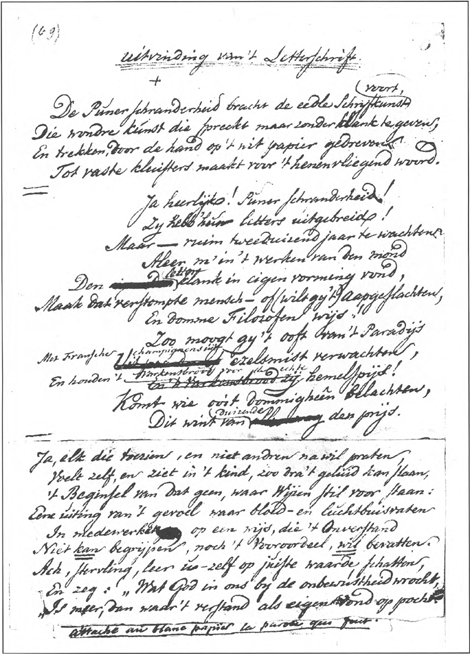 (69)
Uitvinding van 't Letterschrift.
De Puner schranderheid bracht de eedle Schrijfkunst voort,
Die wondre kunst die spreekt maar zonder klank te geven,
En trekken, door de hand op 't wit papier gedreven
Tot vaste kluisters maakt voor 't henenvliegend woord.
Ja heerlijk! Puner schranderheid!
Zy heb' hun letters uitgebreid!
Maar — ruim tweeduizend jaar te wachten
Aleer m' in 't werken van den mond
Den letter klank in eigen vorming vond,
Maak dat verstompte mensch — of wilt gy 't, aapgeslachten,
En domme Filozofen wijs!
Zoo moogt gy 't ooft van 't Paradijs
Met Fransche champignons in ezelsmist verwachten,
En houden 't Varkensbrood voor hemelspijs!
Komt wie ooit dommigheên belachten,
Dit wint van duizende den prijs.
Ja, elk die toezien, en niet andren na wil praten,
Voelt zelf, en ziet in 't kind, zoo dra 't geluid kan slaan,
't Beginsel van dat geen, waar Wijzen stil voor staan:
Eene uiting van 't gevoel waar bloed- en luchtbuisvaten
In medewerken op een wijs, die 't Onverstand
Niet kan begrijpen, noch 't Vooroordeel, wil bevatten.
Ach, sterveling, leer u-zelf op juiste waarde schatten,
En zeg: „Wat God in ons by de onbewustheid wrocht,
„Is meer, dan waar 't verstand als eigen vond op pocht."
attaché au blanc papier la parole qui fuit.